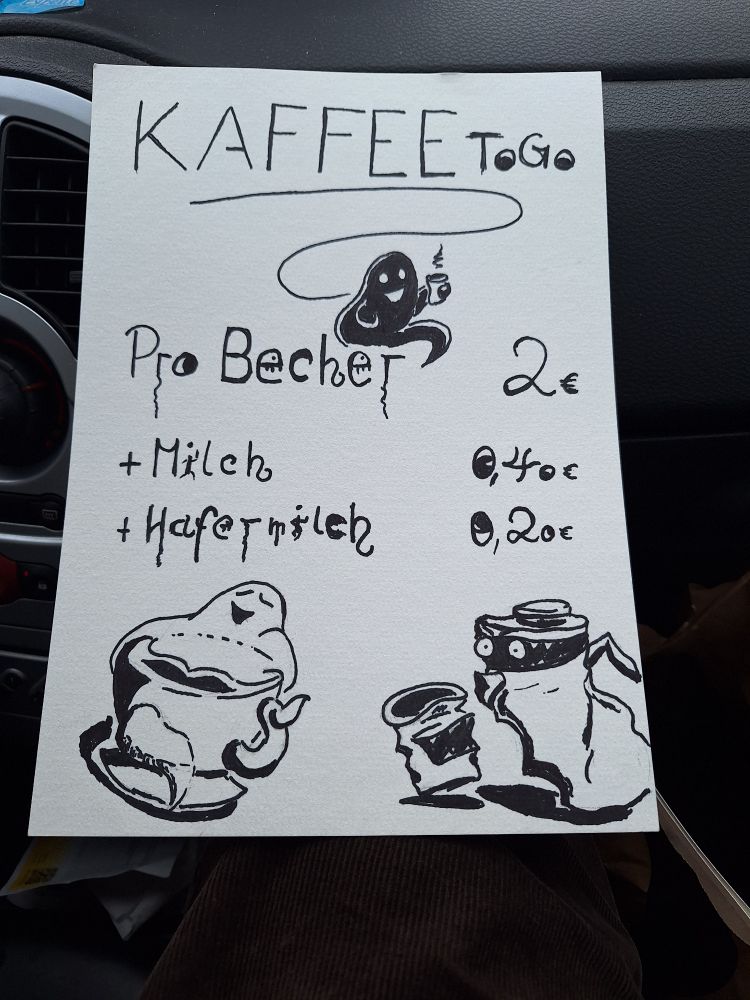 KAFFEE ToGo
Pro Becher 2€
+ Milch 0,40€
+ Hafermilch 0,20€